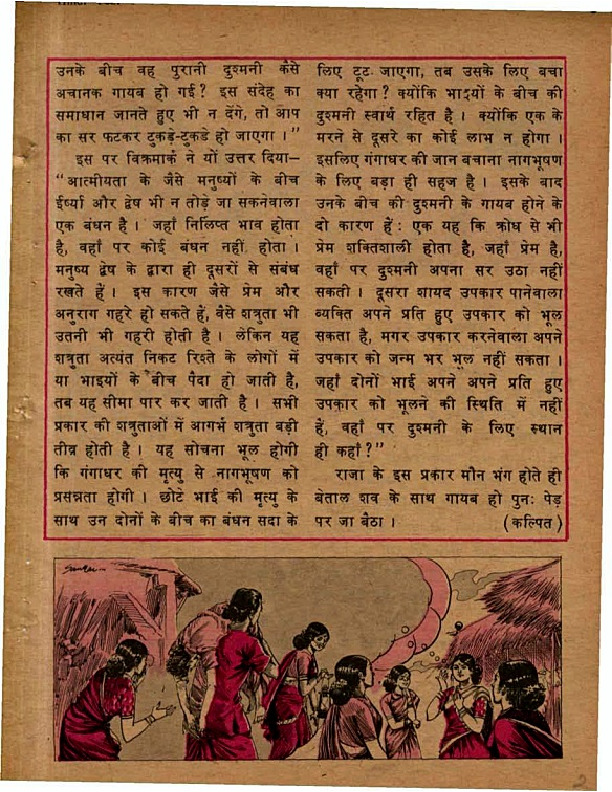 उनके बीच वह पुरानी दुश्मनी कैसे
अचानक गायब हो गई? इस संदेह का
समाधान जानते हुए भी न देंगे, तो आप
का सर फटकर टुकड़े-टुकडे हो जाएगा ।''
इस पर विक्रमार्क ने यों उत्तर दिया—
"आत्मीयता के जैसे मनुष्यों के बीच
ईर्ष्या और द्वेष भी न तोड़े जा सकनेवाला
एक बंधन है । जहाँ निर्लिप्त भाव होता
है, वहाँ पर कोई बंधन नहीं होता ।
मनुष्य द्वेष के द्वारा ही दूसरों से संबंध
रखते हैं । इस कारण जैसे प्रेम और
अनुराग गहरे हो सकते हैं, वैसे शत्रुता भी
उतनी भी गहरी होती है । लेकिन यह
शत्रुता अत्यंत निकट रिश्ते के लोगों में
या भाइयों के बीच पैदा हो जाती है,
तब यह सीमा पार कर जाती है । सभी
प्रकार की शत्रुताओं में आगर्भ शत्रुता बड़ी
तीव्र होती है । यह सोचना भूल होगी
कि गंगाधर की मृत्यु से नागभूषण को
प्रसन्नता होगी । छोटे भाई की मृत्यु के
साथ उन दोनों के बीच का बंधन सदा के
लिए टूट जाएगा, तब उसके लिए बचा
क्या रहेगा ? क्योंकि भाइयों के बीच की
दुश्मनी स्वार्थ रहित है । क्योंकि एक के
मरने से दूसरे का कोई लाभ न होगा ।
इसलिए गंगाधर की जान बचाना नागभूषण
के लिए बड़ा ही सहज है । इसके बाद
उनके बीच की दुश्मनी के गायब होने के
दो कारण हैं: एक यह कि क्रोध से भी
प्रेम शक्तिशाली होता है, जहाँ प्रेम है,
वहाँ पर दुश्मनी अपना सर उठा नहीं
सकती । दूसरा शायद उपकार पानेवाला
व्यक्ति अपने प्रति हुए उपकार को भूल
सकता है, मगर उपकार करनेवाला अपने
उपकार को जन्म भर भूल नहीं सकता ।
जहाँ दोनों भाई अपने अपने प्रति हुए
उपकार को भूलने की स्थिति में नहीं
हैं, वहाँ पर दुश्मनी के लिए स्थान
ही कहाँ?"
राजा के इस प्रकार मौन भंग होते ही
बेताल शव के साथ गायब हो पुनः पेड़
पर जा बैठा । (कल्पित)
2